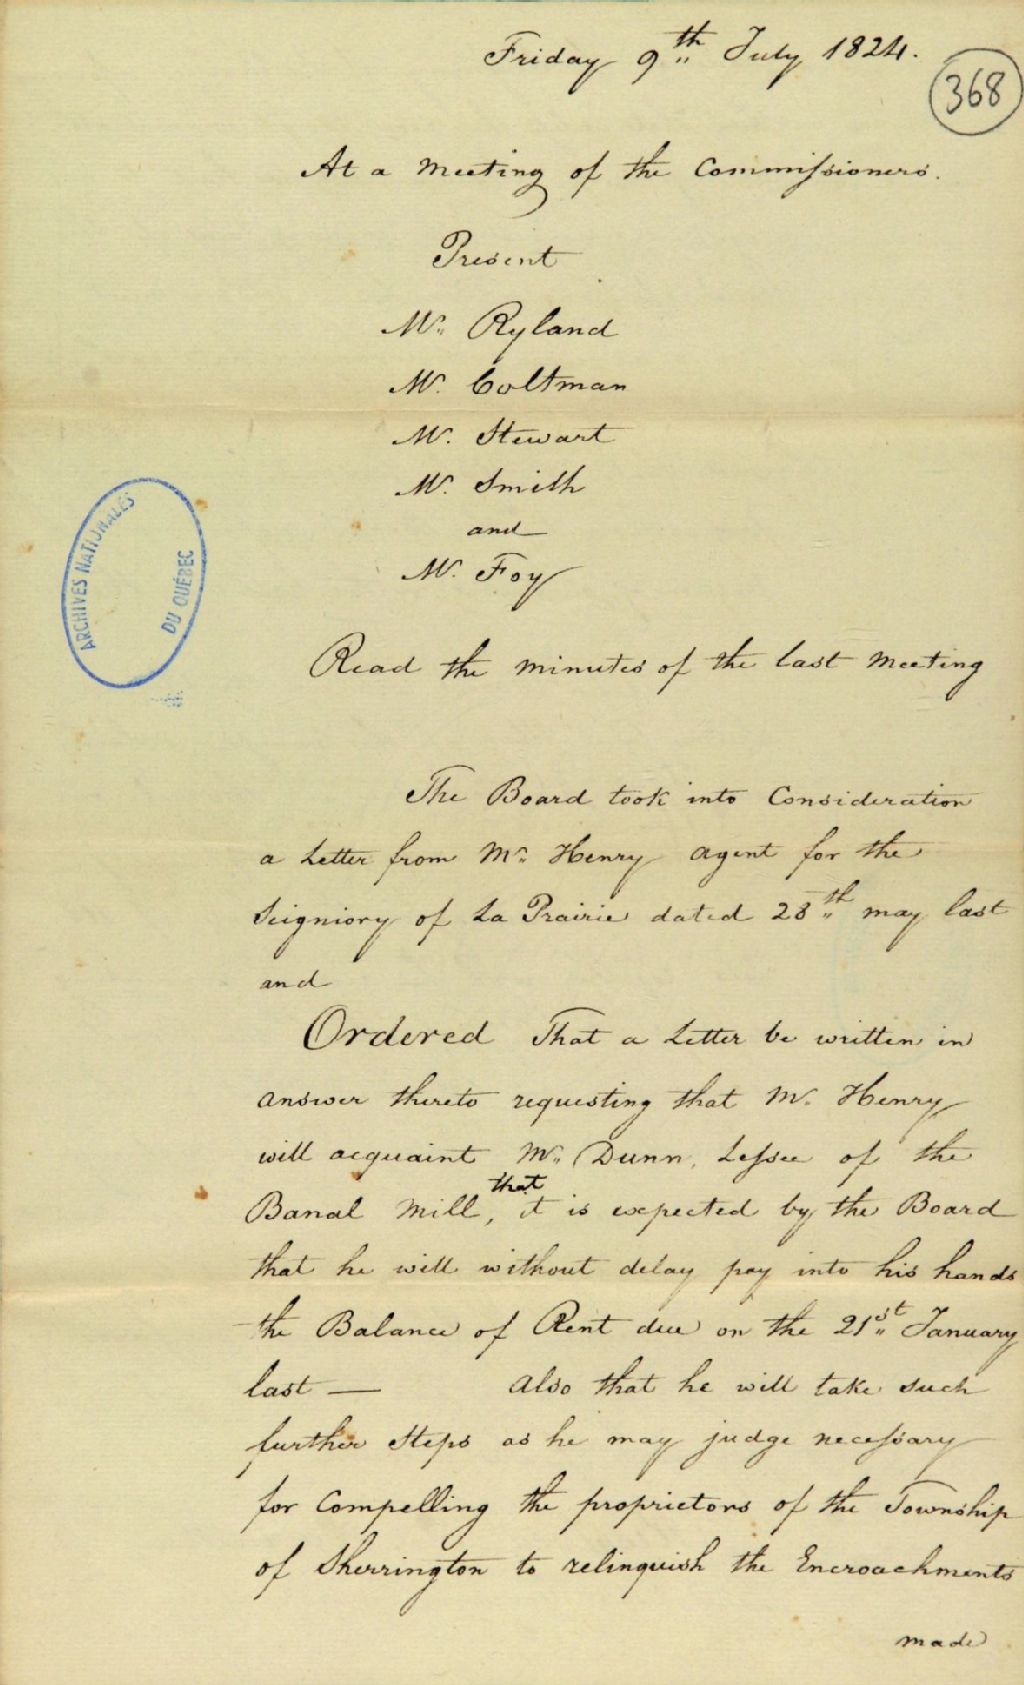 Friday 9th July 1824.
368
At a Meeting of the Commissioners.
Present
Mr. Ryland
Mr. Coltman
Mr. Stewart
Mr. Smith
and
Mr. Foy
ARCHIVES NATIONALES
DU QUÉBEC
Read the minutes of the last Meeting
The Board took into Consideration
a Letter from Mr. Henry agent for the
Seigniory of La Prairie dated 28th may last
and
Ordered That a Letter be written in
answer thereto requesting that Mr. Henry
will acquaint Mr. Dunn, Lessee of the
Banal Mill, that it is expected by the Board
that he will without delay pay into his hands
the Balance of Rent due on the 21st January
last — Also that he will take such
further Steps as he may judge necessary
for Compelling the proprietors of the Township
of Sherrington to relinquish the Encroachments
made